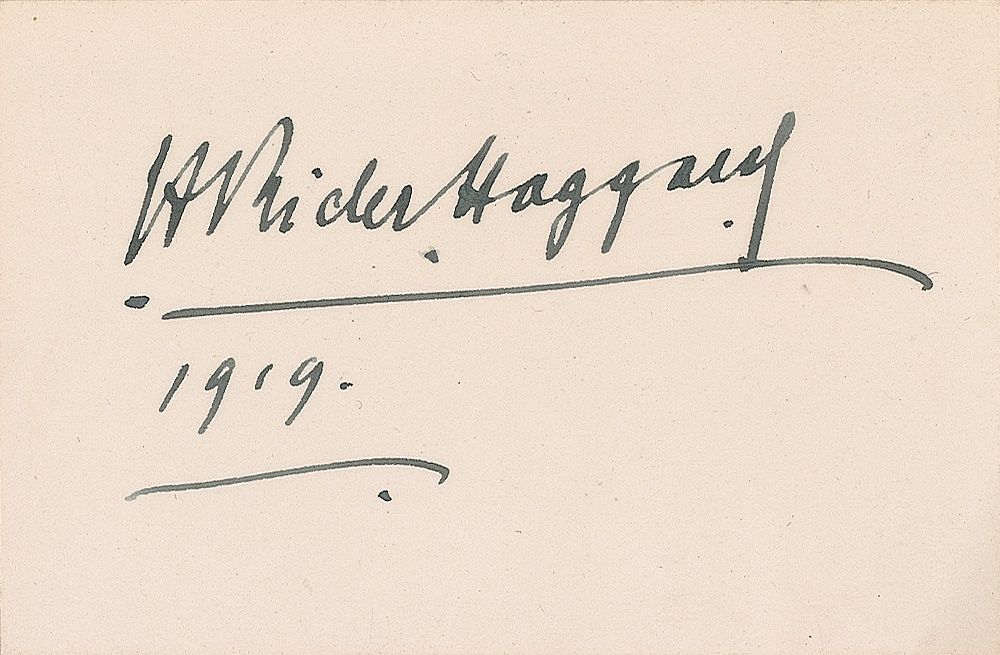 H Rider Haggard
1919.